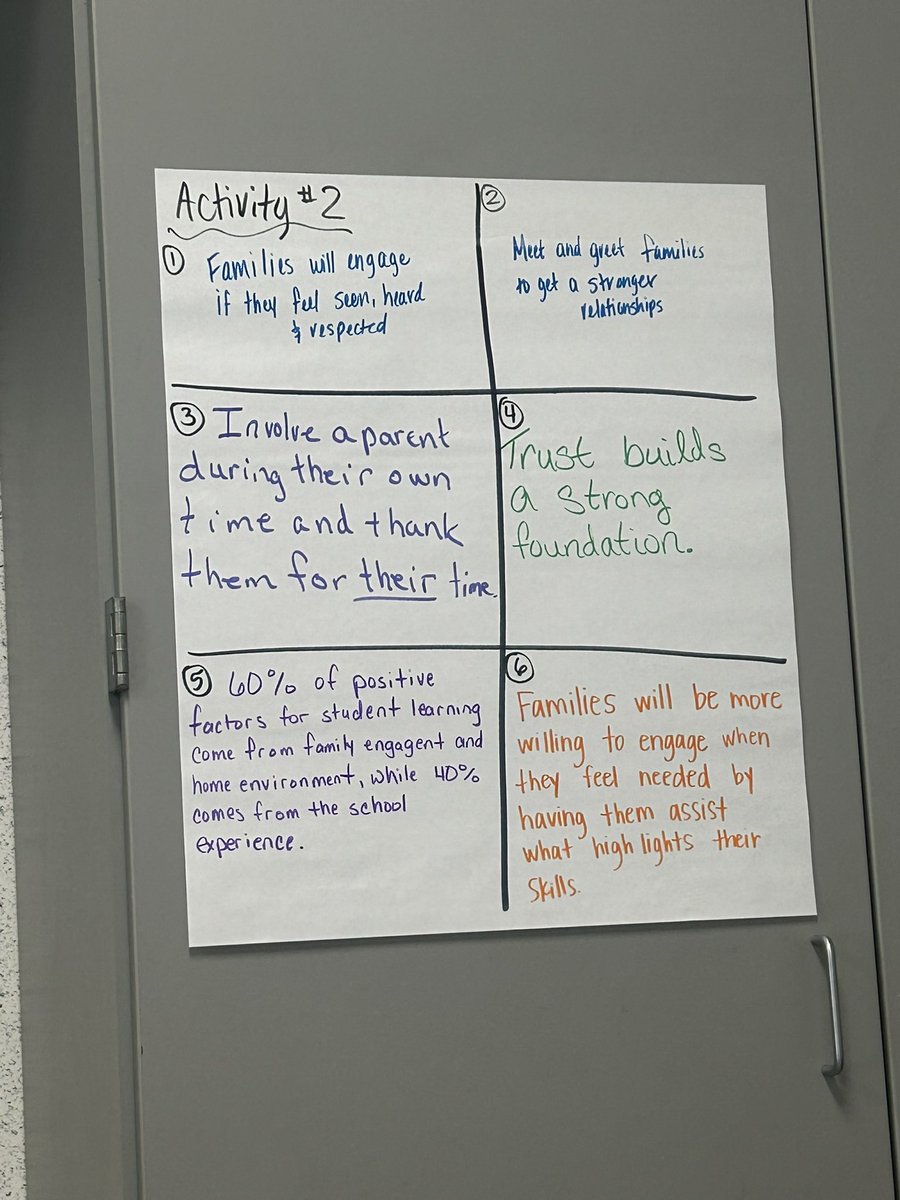 Activity #2
① Families will engage
if they feel seen, heard
& respected
②
Meet and greet families
to get a stronger
relationships
③ Involve a parent
during their own
time and thank
them for their time.
④
Trust builds
a strong
foundation.
⑤ 60% of positive
factors for student learning
come from family engagent and
home environment, while 40%
comes from the school
experience.
⑥
Families will be more
willing to engage when
they feel needed by
having them assist
what high lights their
skills.